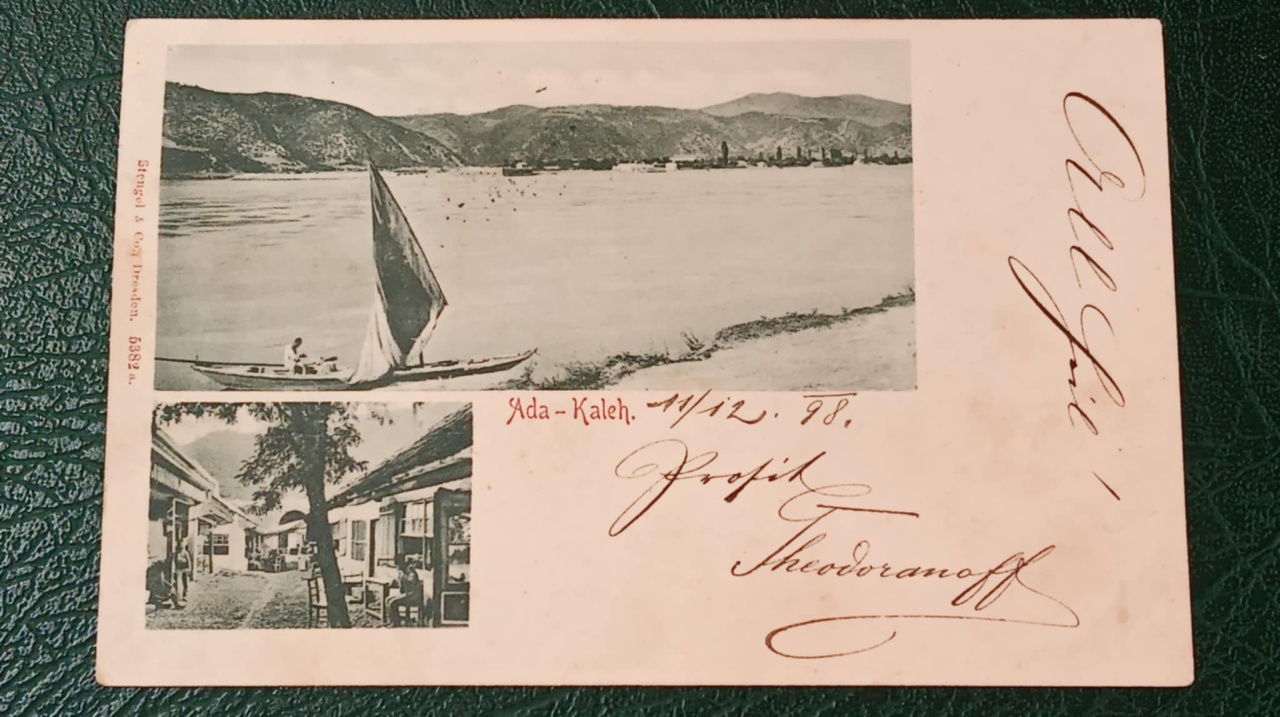 Stengel & Co., Dresden. 5382 a.
Ada-Kaleh. 11/12. 98.
Prosit
Theodoranoff
All Heil!